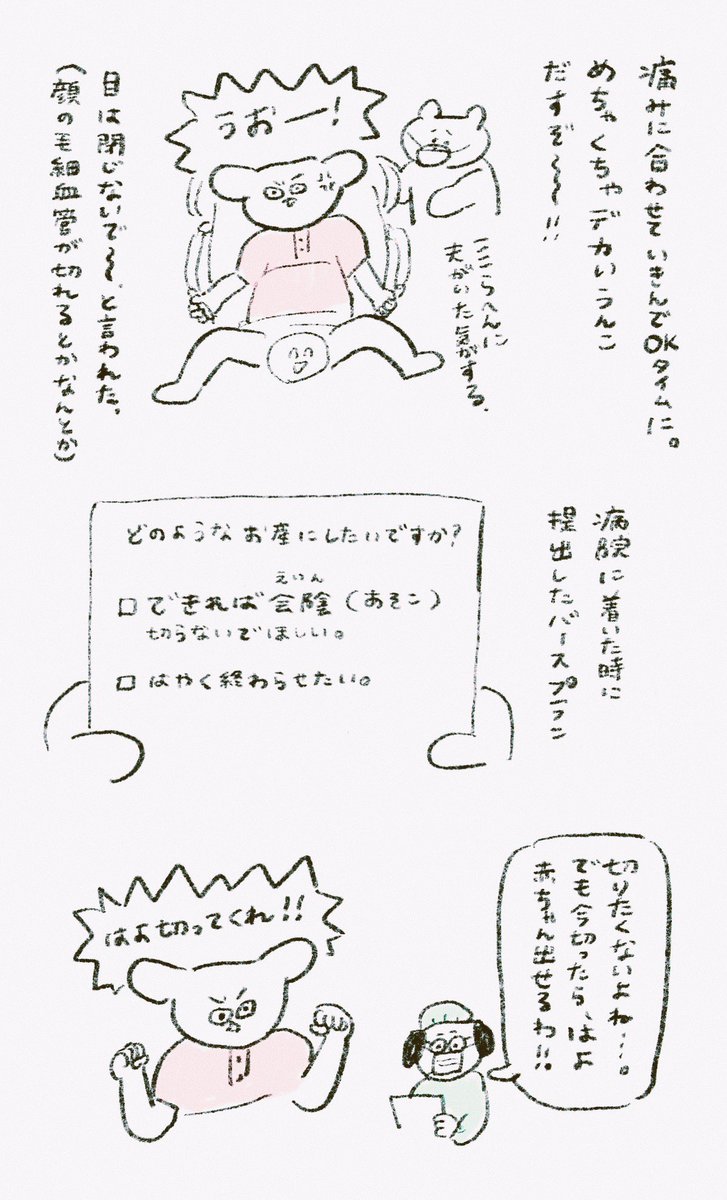 痛みに合わせていきんでOKタイムに。
めちゃくちゃデカいうんこ
だすぞ〜〜!!
うおー!
ここらへんに
夫がいた気がする、
目は閉じないで〜、と言われた。
(顔の毛細血管が切れるとかなんとか)
病院に着いた時に
提出したバースプラン
どのようなお産にしたいですか?
□できれば会陰(あそこ)
えいん
切らないでほしい。
□はやく終わらせたい。
切りたくないよね…。
でも今切ったら、はよ
赤ちゃん出せるわ!!
はよ切ってくれ!!